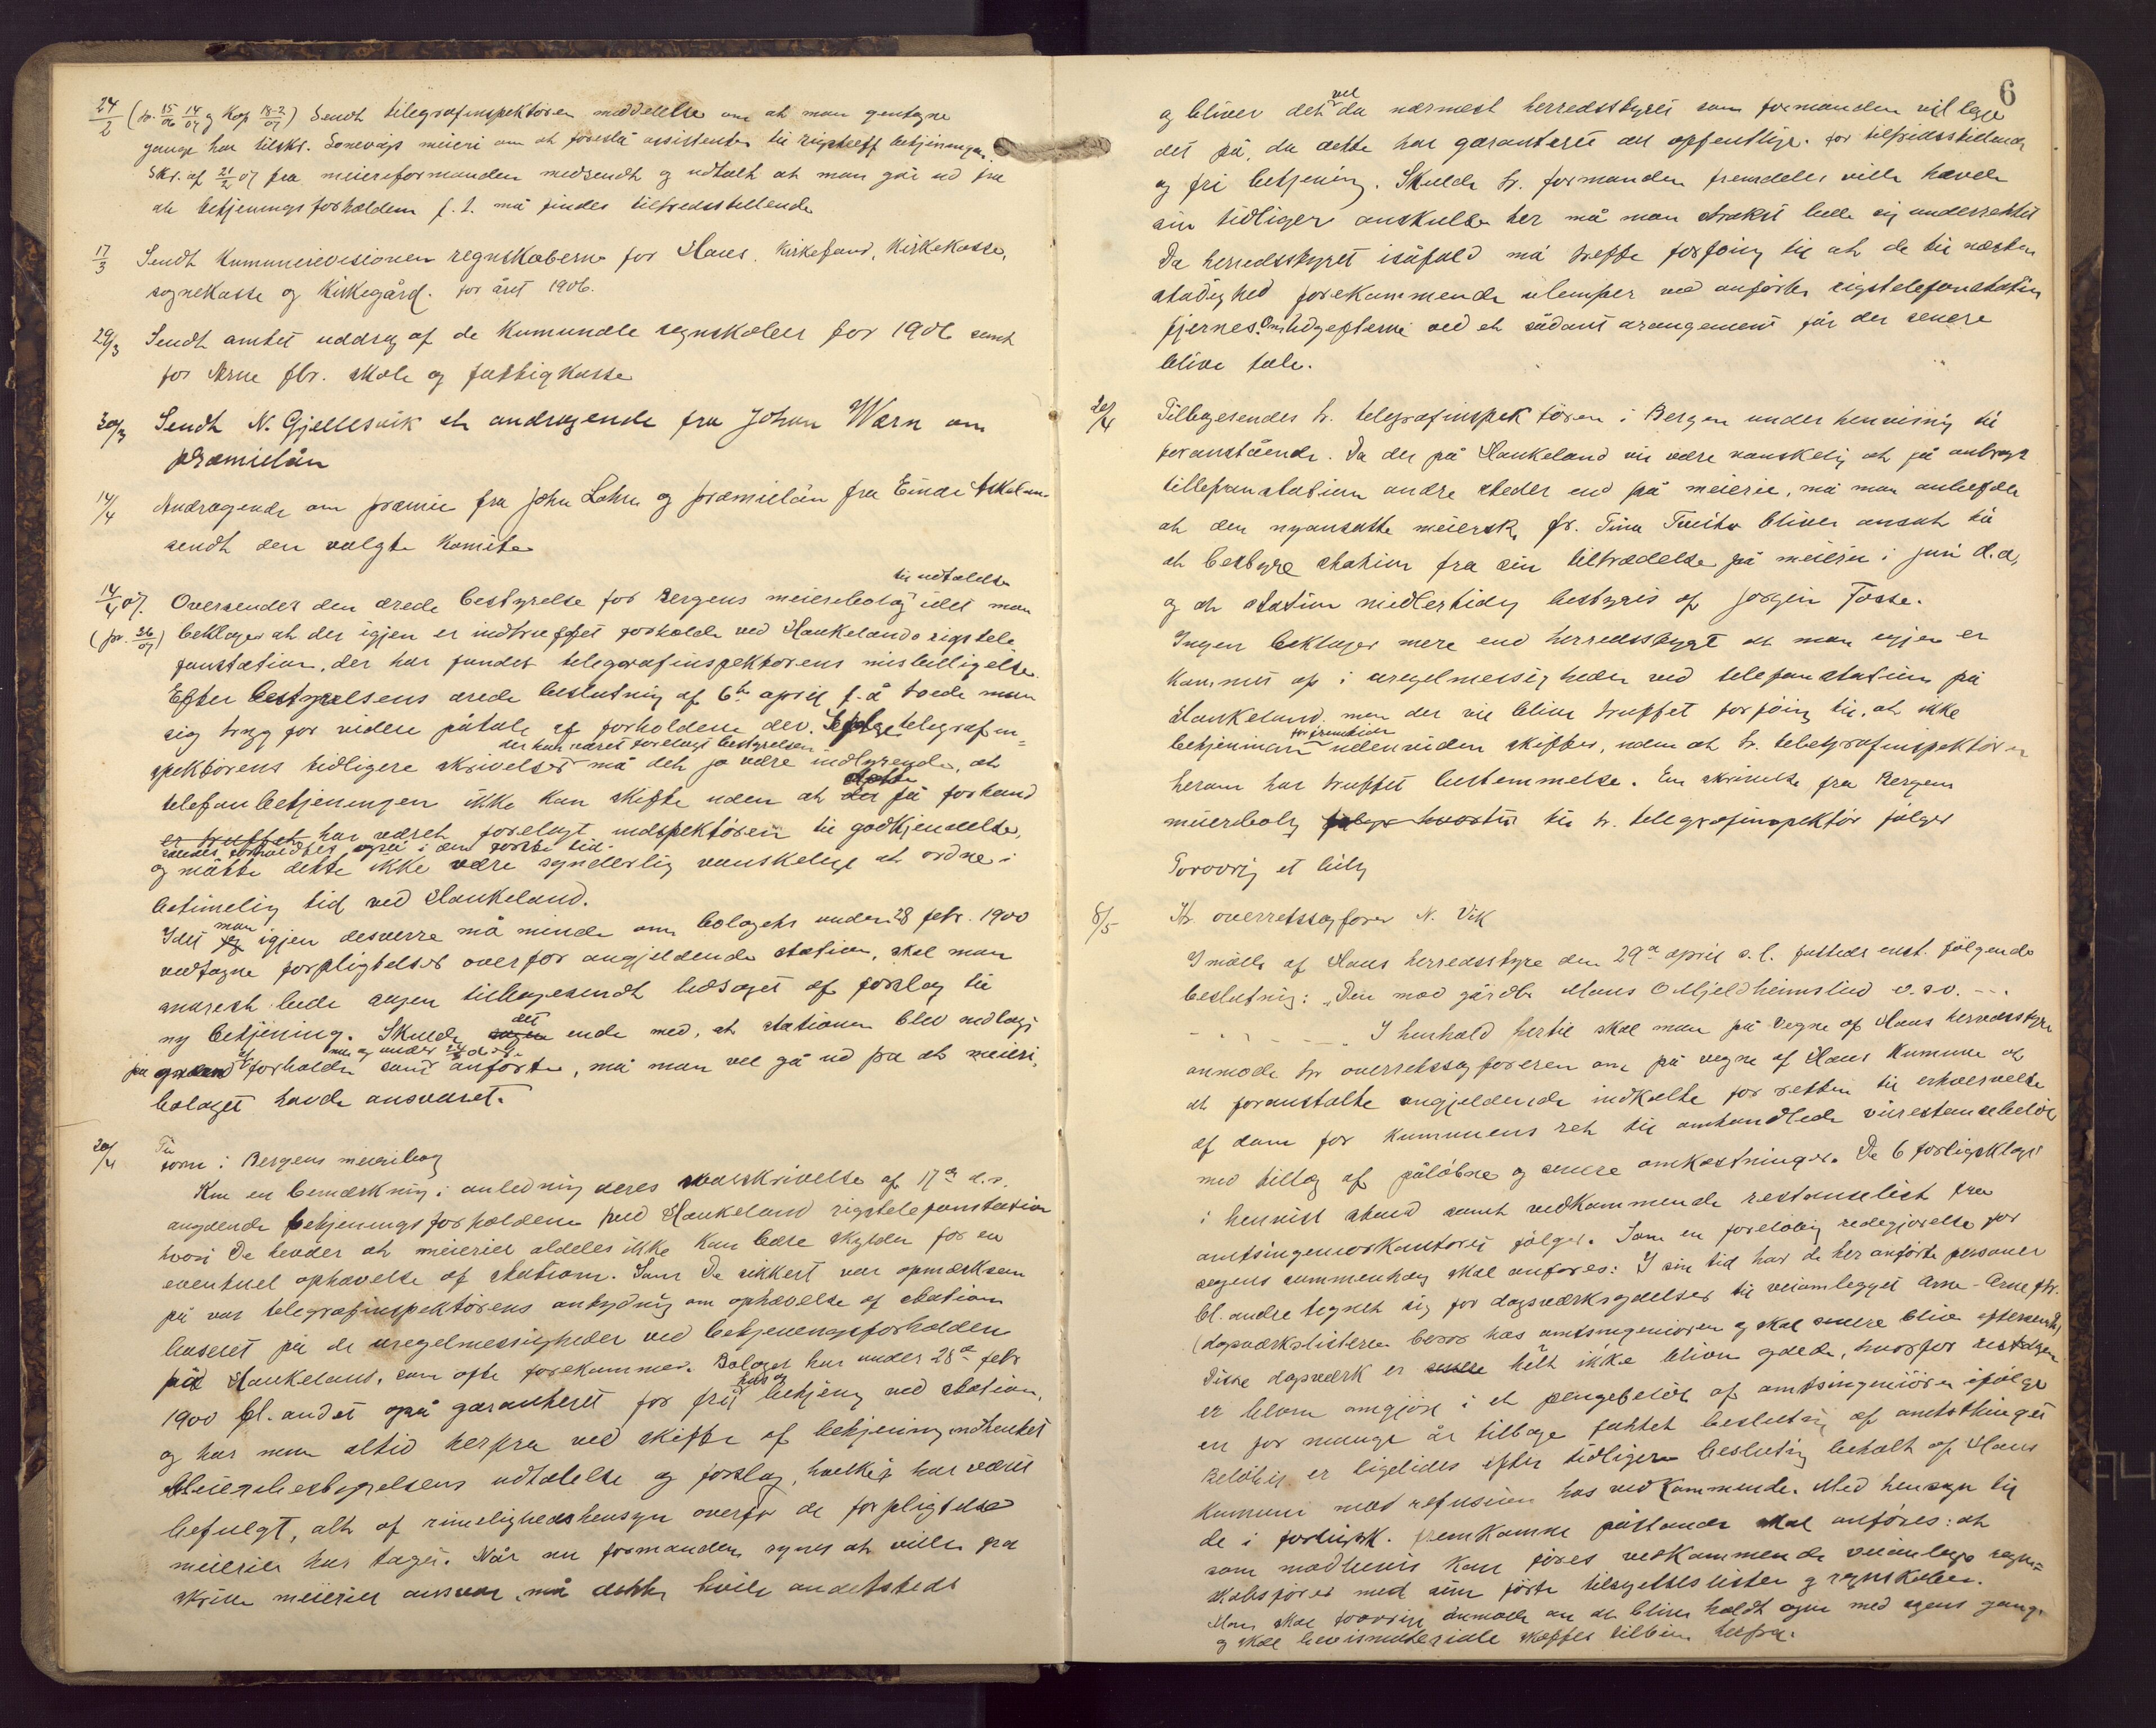 24/2 (pr. 15/06 14/07 og Kop 18-2/07) Sendt telegrafinspektøren meddelelse om at man gentagne
gange har tilskr. Lonevågs meieri om at foreslå assistenter til rigsteleff betjeningen.
Skr. af 21/2 07 fra meieriformanden medsendt og udtalt at man går ud fra
at betjeningsforholdene f. t. må findes tilfredsstillende
17/3 Sendt kumunerevisionen regnskaberne for Haus Kirkefond, Kirkekasse,
sognekasse og Kirkegård. for året 1906.
29/3 Sendt amtet uddrag af de kumunale regnskaber for 1906 samt
for Arne fbr. skole og fattigkasse
30/3 Sendt N. Gjellesvik et andragende fra Johan Wærn om
præmielån
14/4 Andragende om præmie fra John Lohne og præmielån fra Einar
sendt den valgte komite
til udtalelse
14/4 07. Oversendes den ærede bestyrelse for Bergens meieribolag idet man
(pr. 26/07) beklager at der igjen er indtruffet forholde ved Haukelands rigstele
fonstation, der har fundet telegrafinspektørens misbilligelse.
Efter bestyrelsens ærede beslutning af 6te april f. å troede man
sig tryg for videre påtale af forholdene der. Ifølge telegrafin=
der har været forelagt bestyrelsen
spektørens tidligere skrivelser må det jo være indlysende, at
telefonbetjeningen ikke kan skifte uden at dette på forhånd
er truffet har været forelagt indspektøren til godkjendelse,
således forholdtes også i den første tid.
og måtte dette ikke være synderlig vanskelige at ordne i
betimelig tid ved Haukeland.
man
Idet jeg igjen desverre må minde om bolagets under 28 febr. 1900
vedtagne forpligtelser overfor angjeldende station, skal man
snarest bede sagen tilbagesendt ledsaget af forslag til
det
ny betjening. Skulde sagen ende med, at stationen blev nedlagt
på grund af forholdene som anførte, må man vel gå ud fra at meieri,
bolaget havde ansvaret.
20/4 Til
form. i Bergens meieribolag
Kun en bemærkning i anledning deres svarskrivelse af 17de d. m.
angående betjeningsforholdene ved Haukeland rigstelefonstation
hvori De hevder at meieriet aldeles ikke kan bære skylden for en
eventuel ophævelse af station. Som De sikkert var opmærksom
på var telegrafinspektørens antydning om ophævelse af station
baseret på de uregelmessigheder ved betjeningsforholdene
på Haukeland, som ofte forekommer. Bolaget har under 28de febr
hus og
1900 bl. andet også garanteret for fri betjening ved station,
og har man altid herfra ved skifte af betjening indhentet
Meieribestyrelsens udtalelse og forslag, hvilket har været
befulgt, alt af rimelighedshensyn overfor de forpligtelser
meieriet har taget. Når nu formanden synes at ville fra
skrive meieriet ansvar, må dette hvile andetsteds
6
vel
og bliver det da nærmest herredsstyret som formanden vil lægge
det på, da dette har garanteret det offentlige for tilfredsstillende
og fri betjening. Skulde hr. formanden fremdeles ville hævde
sin tidligere anskuelse her må man straks bede sig underrettet
Da herredsstyret isåfald må treffe forføining til at de til næsten
stadighed forekommende ulemper ved anførte rigstelefonstation
fjernes. Om udgifterne ved et sådant arangement får der senere
blive tale.
20/4 Tilbagesendes hr. telegrafinspektøren i Bergen under henvisning til
foranstående. Da det på Haukeland vil være vanskelig at få anbragt
tillefonstation andre steder end på meieriet, må man anbefale
at den nyansatte meierske fr. Tina Tveito bliver ansat til
at bestyre station fra sin tiltrædelse på meieriet i juni d. a,
og at station midlertidig bestyres af Jørgen Fosse.
Ingen beklager mere end herredsstyret at man igjen er
kommet op i uregelmessigheder ved telefonstation på
Haukeland, men der vil blive truffet forføining til, at ikke
for fremtiden
betjeningen udenviden skiftes, uden at hr. telegrafinspektøren
herom har truffet bestemmelse. En skrivelse fra Bergens
meieribolag til hr. telegrafinspektør følger
Forøvrig et bilag
8/5 Hr. overretssagfører N. Vik
I møde af Haus herredsstyre den 29de april d. å. fattedes enst. følgende
beslutning: „Den mod gårdbr. Mons O Mjeldheimslid o. s. v. ---
I henhold hertil skal man på vegne af Haus herredsstyre
anmode hr overretssagføreren om på vegne af Haus kumune at
at foranstalte angjeldende indkalte for retten til erhvervelse
af dom for kumunens ret til omhandlede veirestancebeløb
med tillæg af påløbne og senere omkostninger. De 6 forligsklager
i henvist stand samt vedkommende restanselist fra
amtsingeniørkontoret følger. Som en foreløbig redegjørelse for
sagens sammenhæng skal anføres: I sin tid har de her anførte personer
bl. andre tegnet sig for dagsværksydelser til veianlegget Arne - Arne fbr.
(dagsværkslisterne beror hos amtsingeniøren og skal senere blive eftersendt)
Disse dagsværk er senere helt ikke bleven gjorde, hvorfor restdagen
er bleven omgjøre i et pengebeløb af amtsingeniøren ifølge
en for mange år tilbage fattet beslutning af amtsthinget
Beløbet er ligeledes efter tidligere beslutning betalt af Haus
kumune mod refusion hos vedkommende. Med hensyn til
de i forligsk. fremkomne påstande skal anføres: at
som modbevis kan føres vedkommende veianlægs regn=
skabsfører med sin førte tilsyelseslister og regnskaber.
Man skal forøvrig anmode om at blive holdt ajour med sagens gang
og skal bevismateriale skaffes tilbeie herfra.